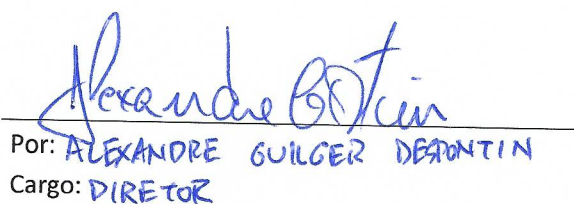 Alexandre
Por: ALEXANDRE GUILGER DESPONTIN
Cargo: DIRETOR